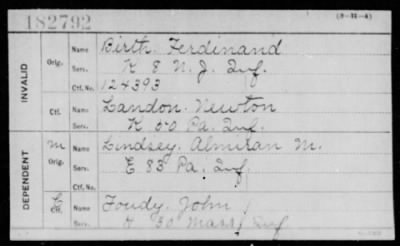 182792
(3-II-4)
INVALID
Orig. Name Birth. Ferdinand
Serv. K 8 N. J. Inf.
Ctf. No. 124393
Ctf. Name Landon. Newton
Serv. K 50 Pa. Inf.
DEPENDENT
m Orig. Name Lindsey. Almiran M.
Serv. E 83 Pa. Inf.
Ctf. No.
Ctf. Name Foudy. John
Serv. 30 Mass. Inf